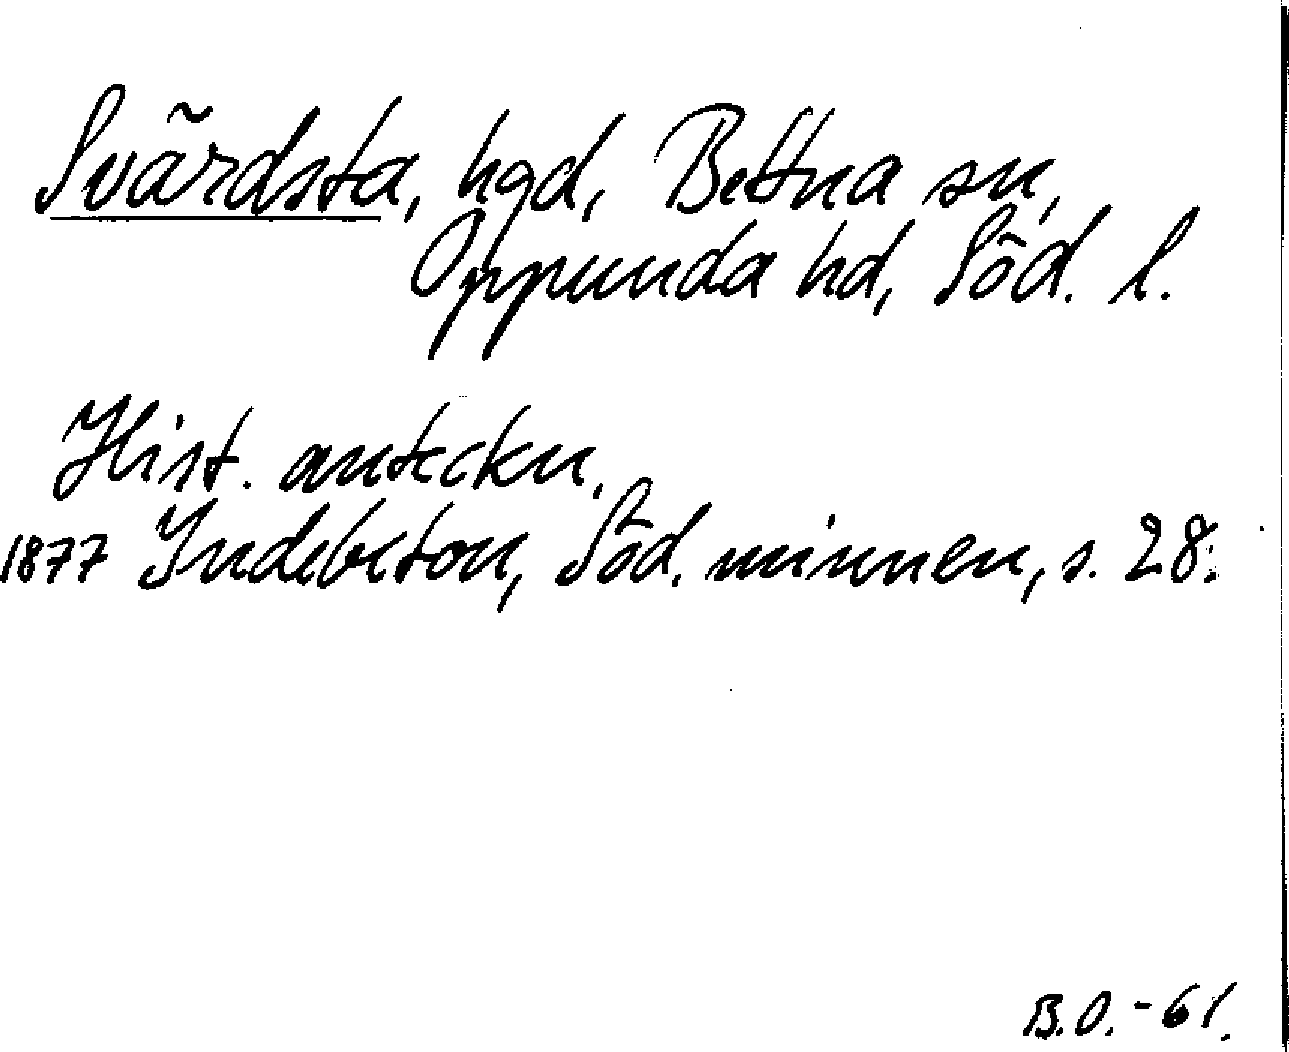 Svärdsta, hgd, Bettna sn,
Oppunda hd, Söd. l.
Hist. anteckn.
1877 Indebetou, Söd. minnen, s. 28.
B.O.-61.